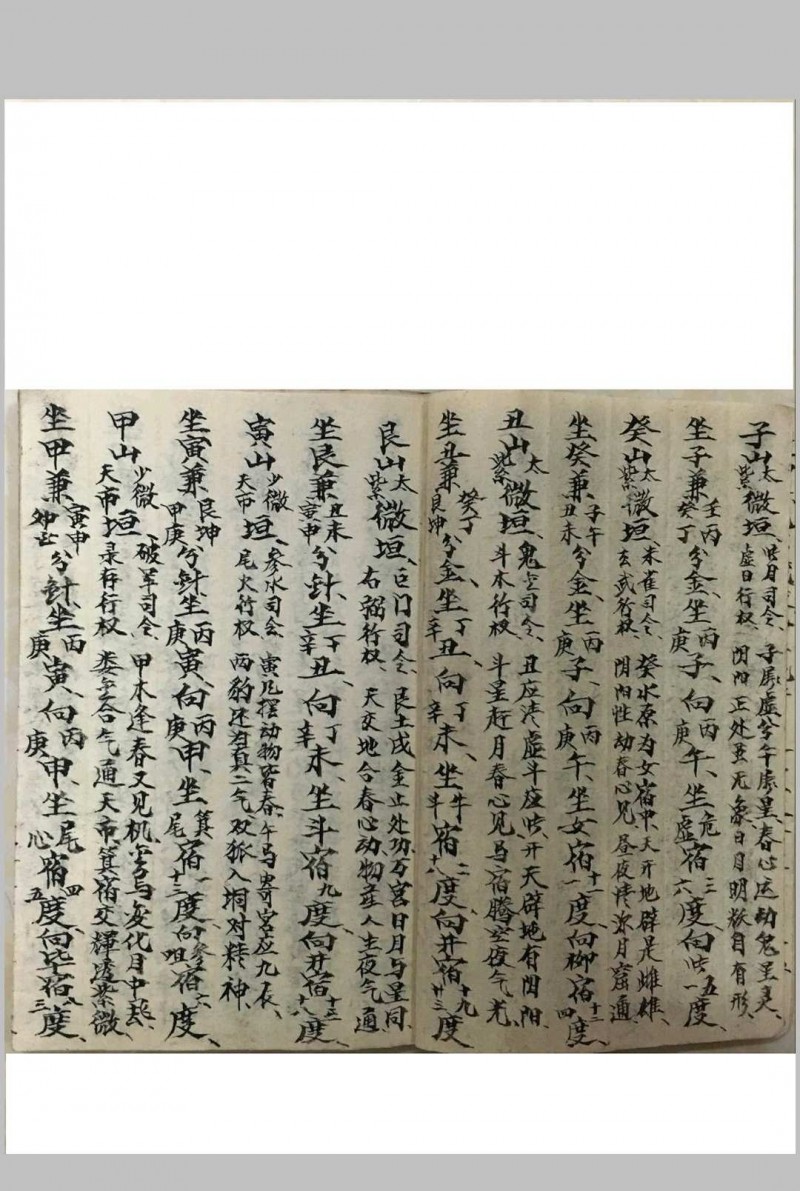 子山太紫微垣、昴月司令、子属虚兮午属星、春心运动鬼呈灵、
虚日行权、阴阳正处并无象、日月明然自有形、
坐子兼壬丙癸丁兮金、坐丙庚子、向丙庚午、坐危虚宿三六度、向一五度、
癸山太紫微垣、朱雀司令、癸水原为女宿中、天开地辟是雌雄、
玄武行权、阴阳性动春心见、昼夜情浓月窟通
坐癸兼子午丑未兮金、坐丙庚子、向丙庚午、坐女宿十一度向柳宿十二四度、
丑山太紫微垣、鬼金司令、丑应清虚斗应 开天辟地有阴阳、
斗木行权、斗星赶月春心见、马宿腾空夜气光、
坐丑兼癸丁艮坤兮金、坐丁辛丑、向丁辛未、坐牛斗宿二十八度、向井宿十九廿三度
艮山太紫微垣、巨门司令、艮土戌金止处功、万宫日月与星同、
右弼行权、天交地合春心动、物产人生夜气通
坐艮兼丑未寅申兮针、坐丁辛丑、向丁辛未、坐斗宿九度向井宿十三十八度、
寅山少微天市垣、参水司令、寅儿摆动物皆春、午马寄宫应九辰、
尾火行权、两豹还须真二气、双狐入洞对精神、
坐寅兼艮坤甲庚兮针坐丙庚寅、向丙庚申、坐箕尾宿一十三度向参咀宿六度、
甲山少微天市垣、破军司令、甲木逢春又见机、安化月中起、
录存行权、娄金合气通天市、箕宿交辉透紫微、
坐甲兼寅申卯酉兮针、坐丙庚寅、向丙庚申、坐尾心宿四五度向毕宿八三度、